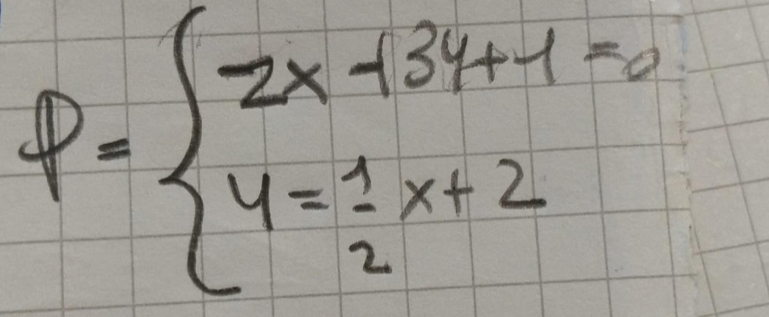 P = { 2x + 3y + 1 = 0
y = 1/2 x + 2